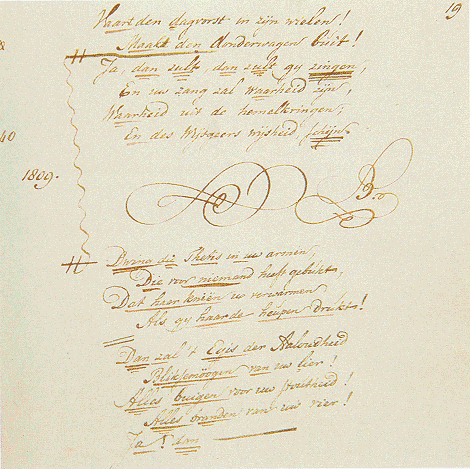 19
Vaart den dagvorst in zijn wielen!
Maakt den donderwagen buit!
Ja, dan zult, dan zult gy zingen,
En uw zang zal waarheid zijn,
Waarheid uit de hemelkringen,
En des Wijsgeers wijsheid, schijn.
40
1809.
B.
Dwing die Thetis in uw armen,
Die voor niemand heeft gebukt,
Dat haar kniën u verwarmen
Als gy haar de heupen drukt!
Dan zal 't Egis der Aaloudheid
Bliksemöogen van uw lier!
Alles buigen voor uw stoutheid!
Alles branden van uw vier!
Ja! dan